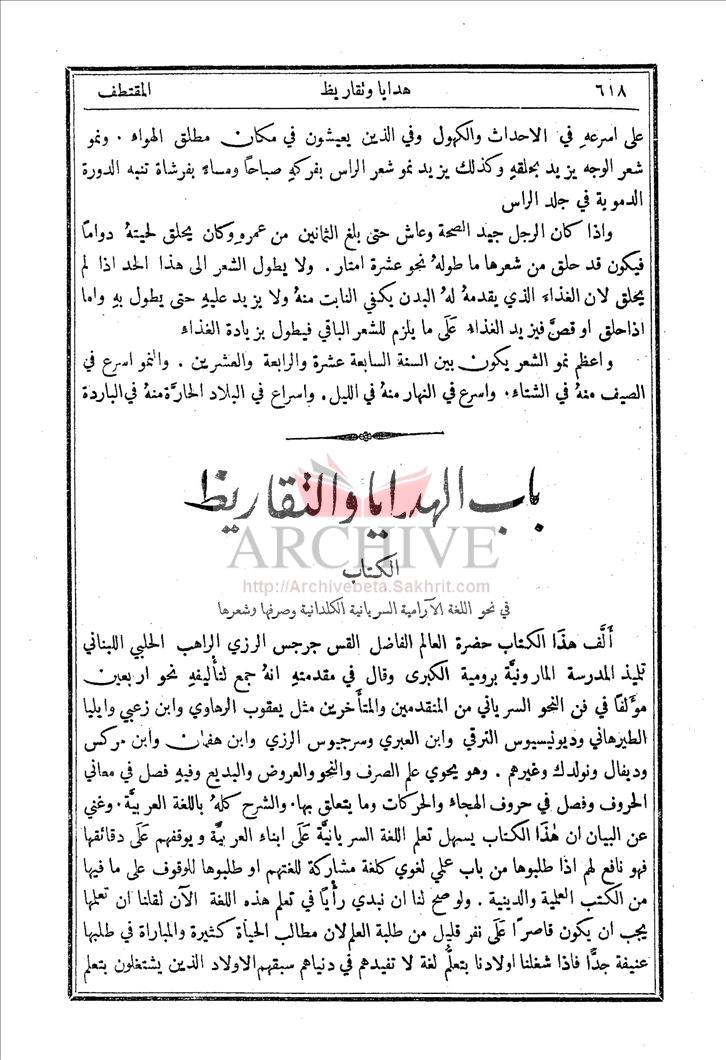 ٦١٨ هدايا وتقاريظ المقتطف
على اسرعهِ في الاحداث والكهول وفي الذين يعيشون في مكان مطلق الهواء . ونمو
شعر الوجه يزيد بحلقهِ وكذلك يزيد نمو شعر الراس بفركهِ صباحًا ومساءً بفرشاة تنبه الدورة
الدموية في جلد الراس
واذا كان الرجل جيد الصحة وعاش حتى بلغ الثمانين من عمره وكان يحلق لحيتهُ دوامًا
فيكون قد حلق من شعرها ما طولهُ نحو عشرة امتار . ولا يطول الشعر الى هذا الحد اذا لم
يحلق لان الغذاء الذي يقدمهُ لهُ البدن يكفي النابت منهُ ولا يزيد عليهِ حتى يطول بهِ واما
اذا حلق او قصَّ فيزيد الغذاء عَلَى ما يلزم للشعر الباقي فيطول بزيادة الغذاء
واعظم نمو الشعر يكون بين السنة السابعة عشرة والرابعة والعشرين . والنمو اسرع في
الصيف منهُ في الشتاء . واسرع في النهار منهُ في الليل . واسراع في البلاد الحارَّة منهُ في الباردة
باب الهدايا والتقاريظ
ARCHIVE
الكتاب
http://Archivebeta.Sakhrit.com
في نحو اللغة الآرامية السريانية الكلدانية وصرفها وشعرها
ألَّف هذا الكتاب حضرة العالم الفاضل القس جرجس الرزي الراهب الحلبي اللبناني
تليذ المدرسة المارونيَّة برومية الكبرى وقال في مقدمتهِ انهُ جمع لتأليفهِ نحو اربعين
مؤلفًا في فن النحو السرياني من المتقدمين والمتأخرين مثل يعقوب الرهاوي وابن زعبي وايليا
الطيرهاني وديونيسيوس الترقي وابن العبري وسرجيوس الرزي وابن هفان وابن مركس
وديفال ونولدك وغيرهم . وهو يحوي علم الصرف والنحو والعروض والبديع وفيهِ فصل في معاني
الحروف وفصل في حروف الهجاء والحركات وما يتعلق بها . والشرح كلهُ باللغة العربيَّة . وغني
عن البيان ان هٰذا الكتاب يسهل تعلم اللغة السريانيَّة عَلَى ابناء العربيَّة ويوقفهم عَلَى دقائقها
فهو نافع لهم اذا طلبوها من باب علمي لغوي كلغة مشاركة للغتهم او طلبوها للوقوف على ما فيها
من الكتب العلمية والدينية . ولو صح لنا ان نبدي رأيًا في تعلم هذه اللغة الآن لقلنا ان تعلمها
يجب ان يكون قاصرًا عَلَى نفر قليل من طلبة العلم لان مطالب الحياة كثيرة والمباراة في طلبها
عنيفة جدًّا فاذا شغلنا اولادنا بتعلُّم لغة لا تفيدهم في دنياهم سبقهم الاولاد الذين يشتغلون بتعلم